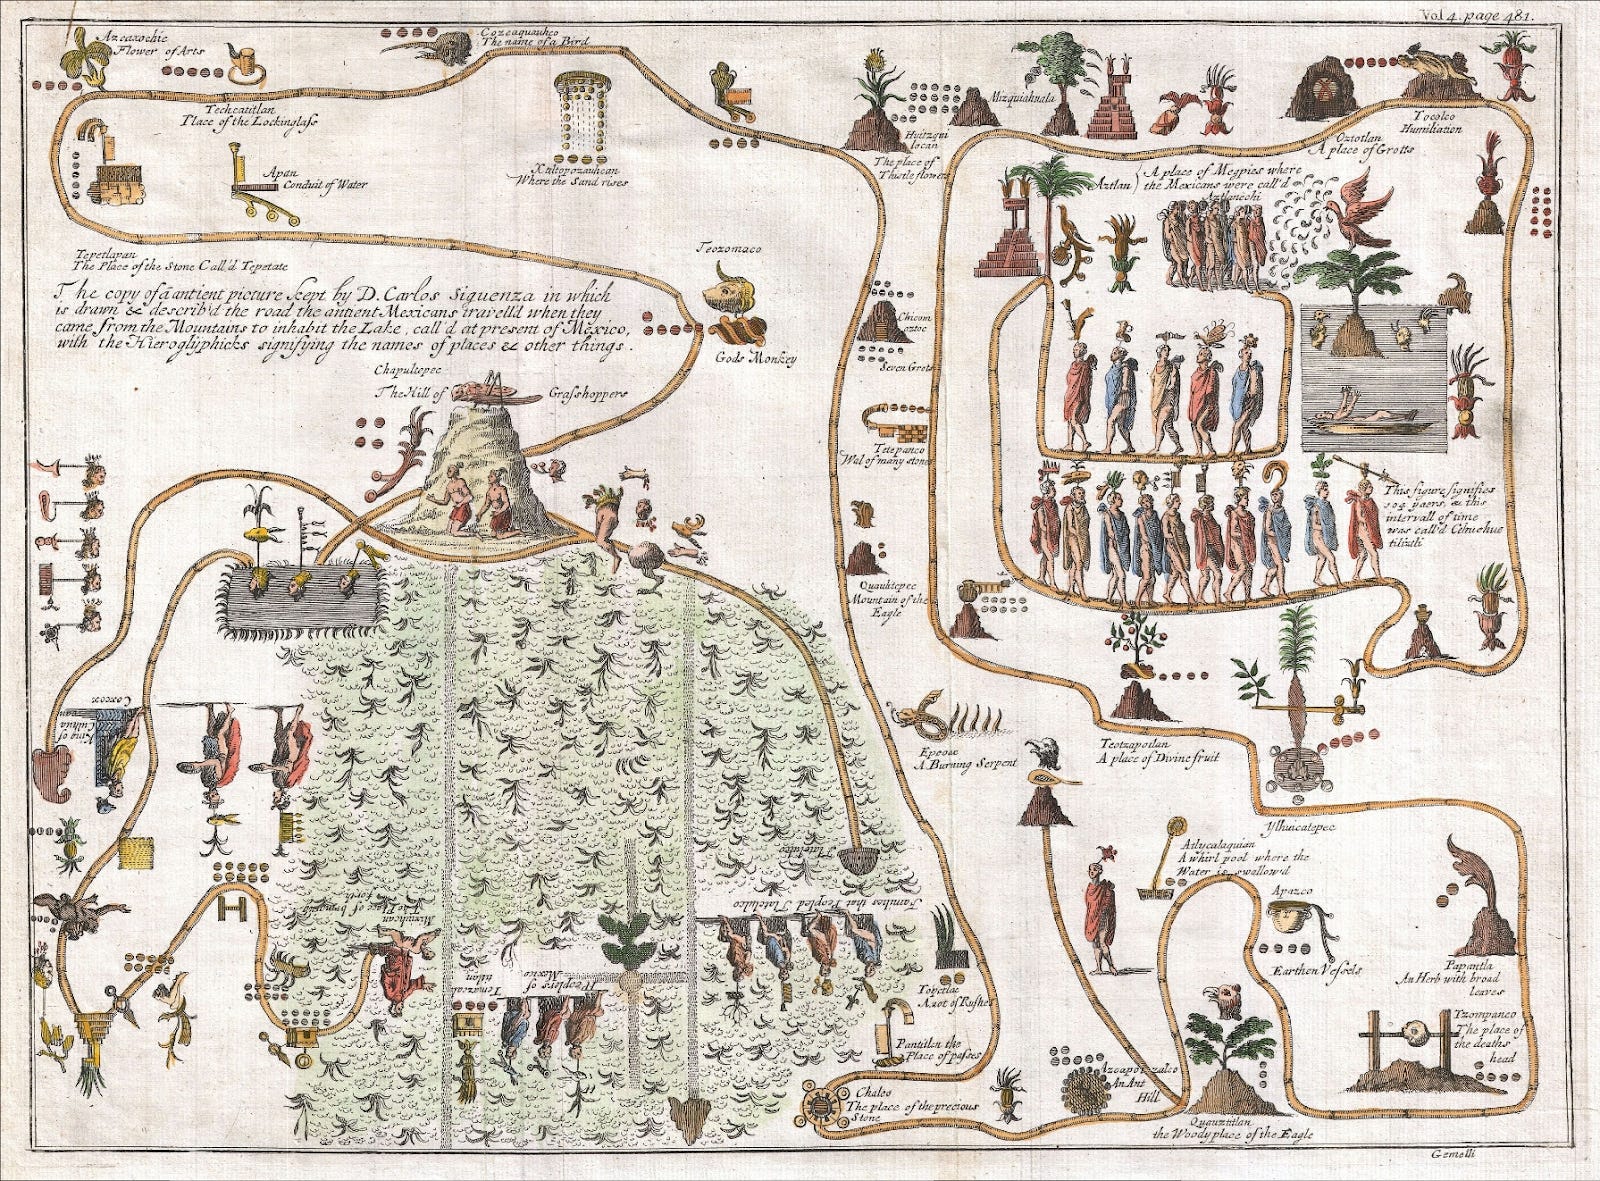 Vol 4. page 481.
Azcaxochic
Flower of Arts
Cozcaquauhco
The name of a Bird
Techcatitlan
Place of the Lockinglass
Xaltepozauhcan
Where the Sand rises
Apan
Conduit of Water
Tepetlapan
The Place of the Stone Call'd Tepetate
The copy of a antient picture kept by D. Carlos Siguenza in which
is drawn & describ'd the road the antient Mexicans travell'd when they
came from the Mountains to inhabit the Lake, call'd at present of Mexico,
with the Hieroglyphicks signifying the names of places & other things.
Teozomaco
Gods Monkey
Chapultepec
The Hill of Grasshoppers
Huitzqui
locan
The place of
Thistle flower
Mizquiahuala
Oztotlan
A place of Grotts
Tocolco
Humiliation
Aztlan
A place of Megpies where
the Mexicans were call'd
Chicom
oztoc
Seven Grots
Tetepanco
Wal of many stones
Quauhtepec
Mountain of the
Eagle
This figure signifies
104 yaers, & this
intervall of time
was call'd
Epcoac
A Burning Serpent
Teotzapotlan
A place of Divine fruit
Ylhuicatepec
A whirl pool where the
Water is swallow'd
Apazco
Earthen Vessels
Papantla
An Herb with broad
leaves
Tzompanco
The place of
the deaths
head
Quauhtitlan
the Woody place of the Eagle
Azcapotzalco
An Ant
Hill
Chalco
The place of the precious
Stone
Pantitlan the
Place of passes
Tolpetlac
A
of Rushes
Coxcox
King of
Culhua
Tlatelulco
Families that Peopled Tlatelulco
Mixiuhcan
The Place of bringing
forth
Peoplers of
Mexico
Gemelli